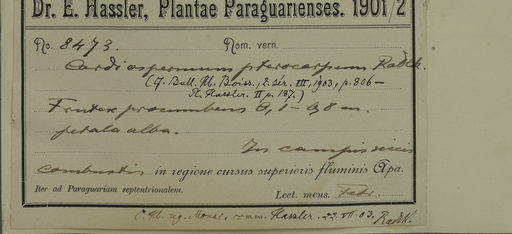 Dr. E. Hassler, Plantae Paraguarienses. 1901/2
No. 8473. Nom. vern.
Cardiospermum pterocarpum Radlk.
(Cf. Bull. Hb. Boiss., 2. sér. III, 1903, p. 806 —
Pl. Hassler. II p. 187.)
Frutex procumbens 0,1 – 0,8 m.
petala alba.
In campis siccis
combustis in regione cursus superioris fluminis Apa.
Iter ad Paraguariam septentrionalem.
Lect. mens. Febr.
C. Hb. reg. Monac. comm. Hassler. 22. VII. 03. Radlk.